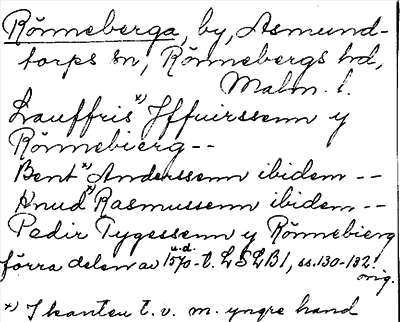 Rönneberga, by, Asmund-
torps sn, Rönnebergs hd,
Malm. l.
Lauffris x) Iffuirssenn y
Rönnebierg --
Bent x) Anderssenn ibidem --
Knud x) Rasmussenn ibidem --
Pedir Tygessenn y Rönnebierg
u.d.
förra delen av 1570-t. LSLB1, ss. 130-132
orig.
x) I kanten t. v. m. yngre hand